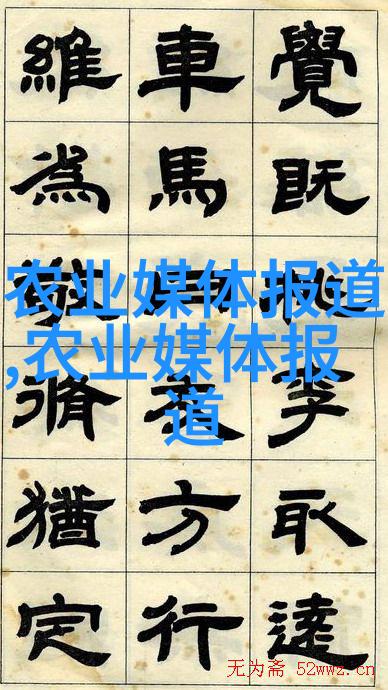 覺既李取遠
車馬方行
維為敬脩猶定
农业媒体报道
,农业媒体报
道
无为斋 52wwz.cn